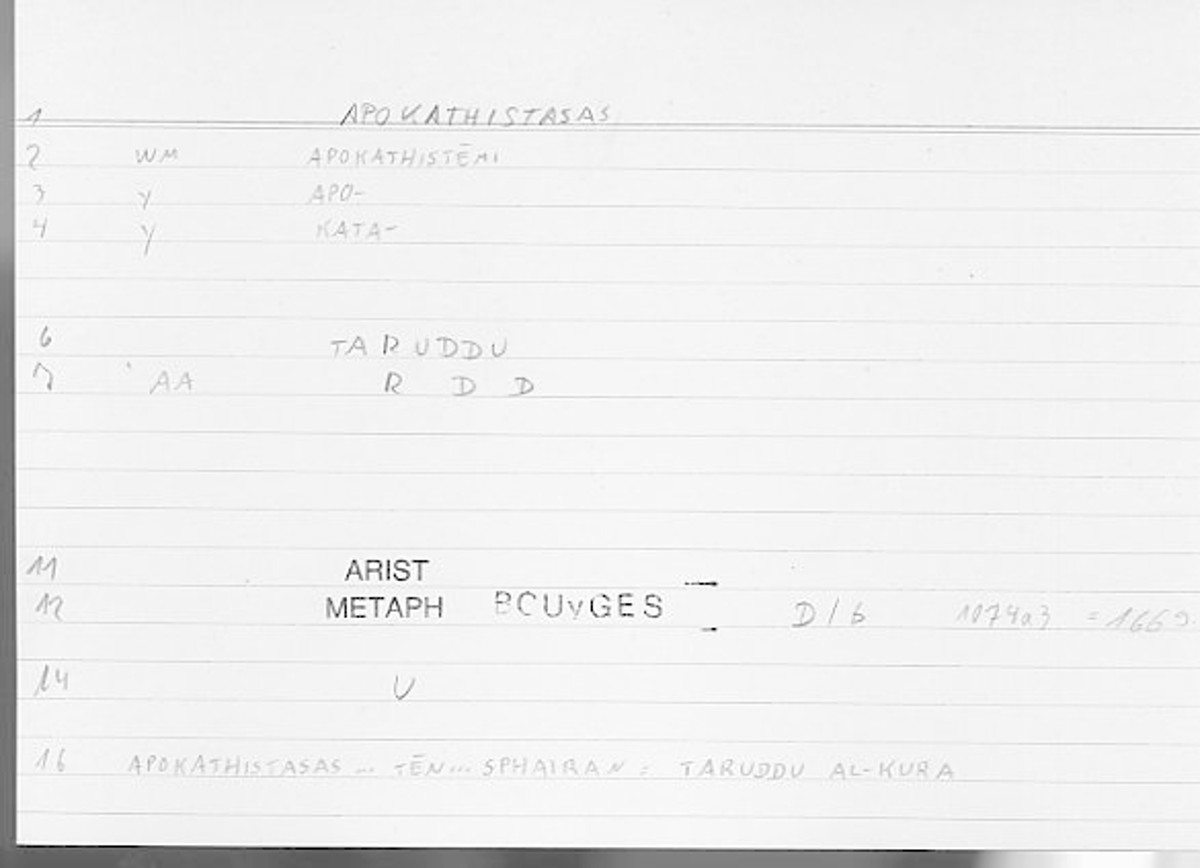 1 APOKATHISTASAS
2 WM APOKATHISTĒMI
3 Y APO-
4 Y KATA-
6 TARUDDU
7 AA R D D
11 ARIST
12 METAPH BOUyGES D/b 1074a3 =1669
14 U
16 APOKATHISTASAS ... TĒN... SPHAIRAN = TARUDDU AL-KURA